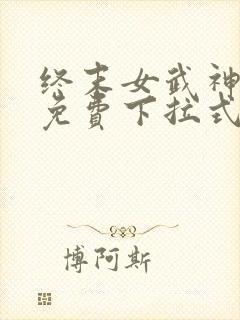 终末女武神
免費下拉式
博阿斯